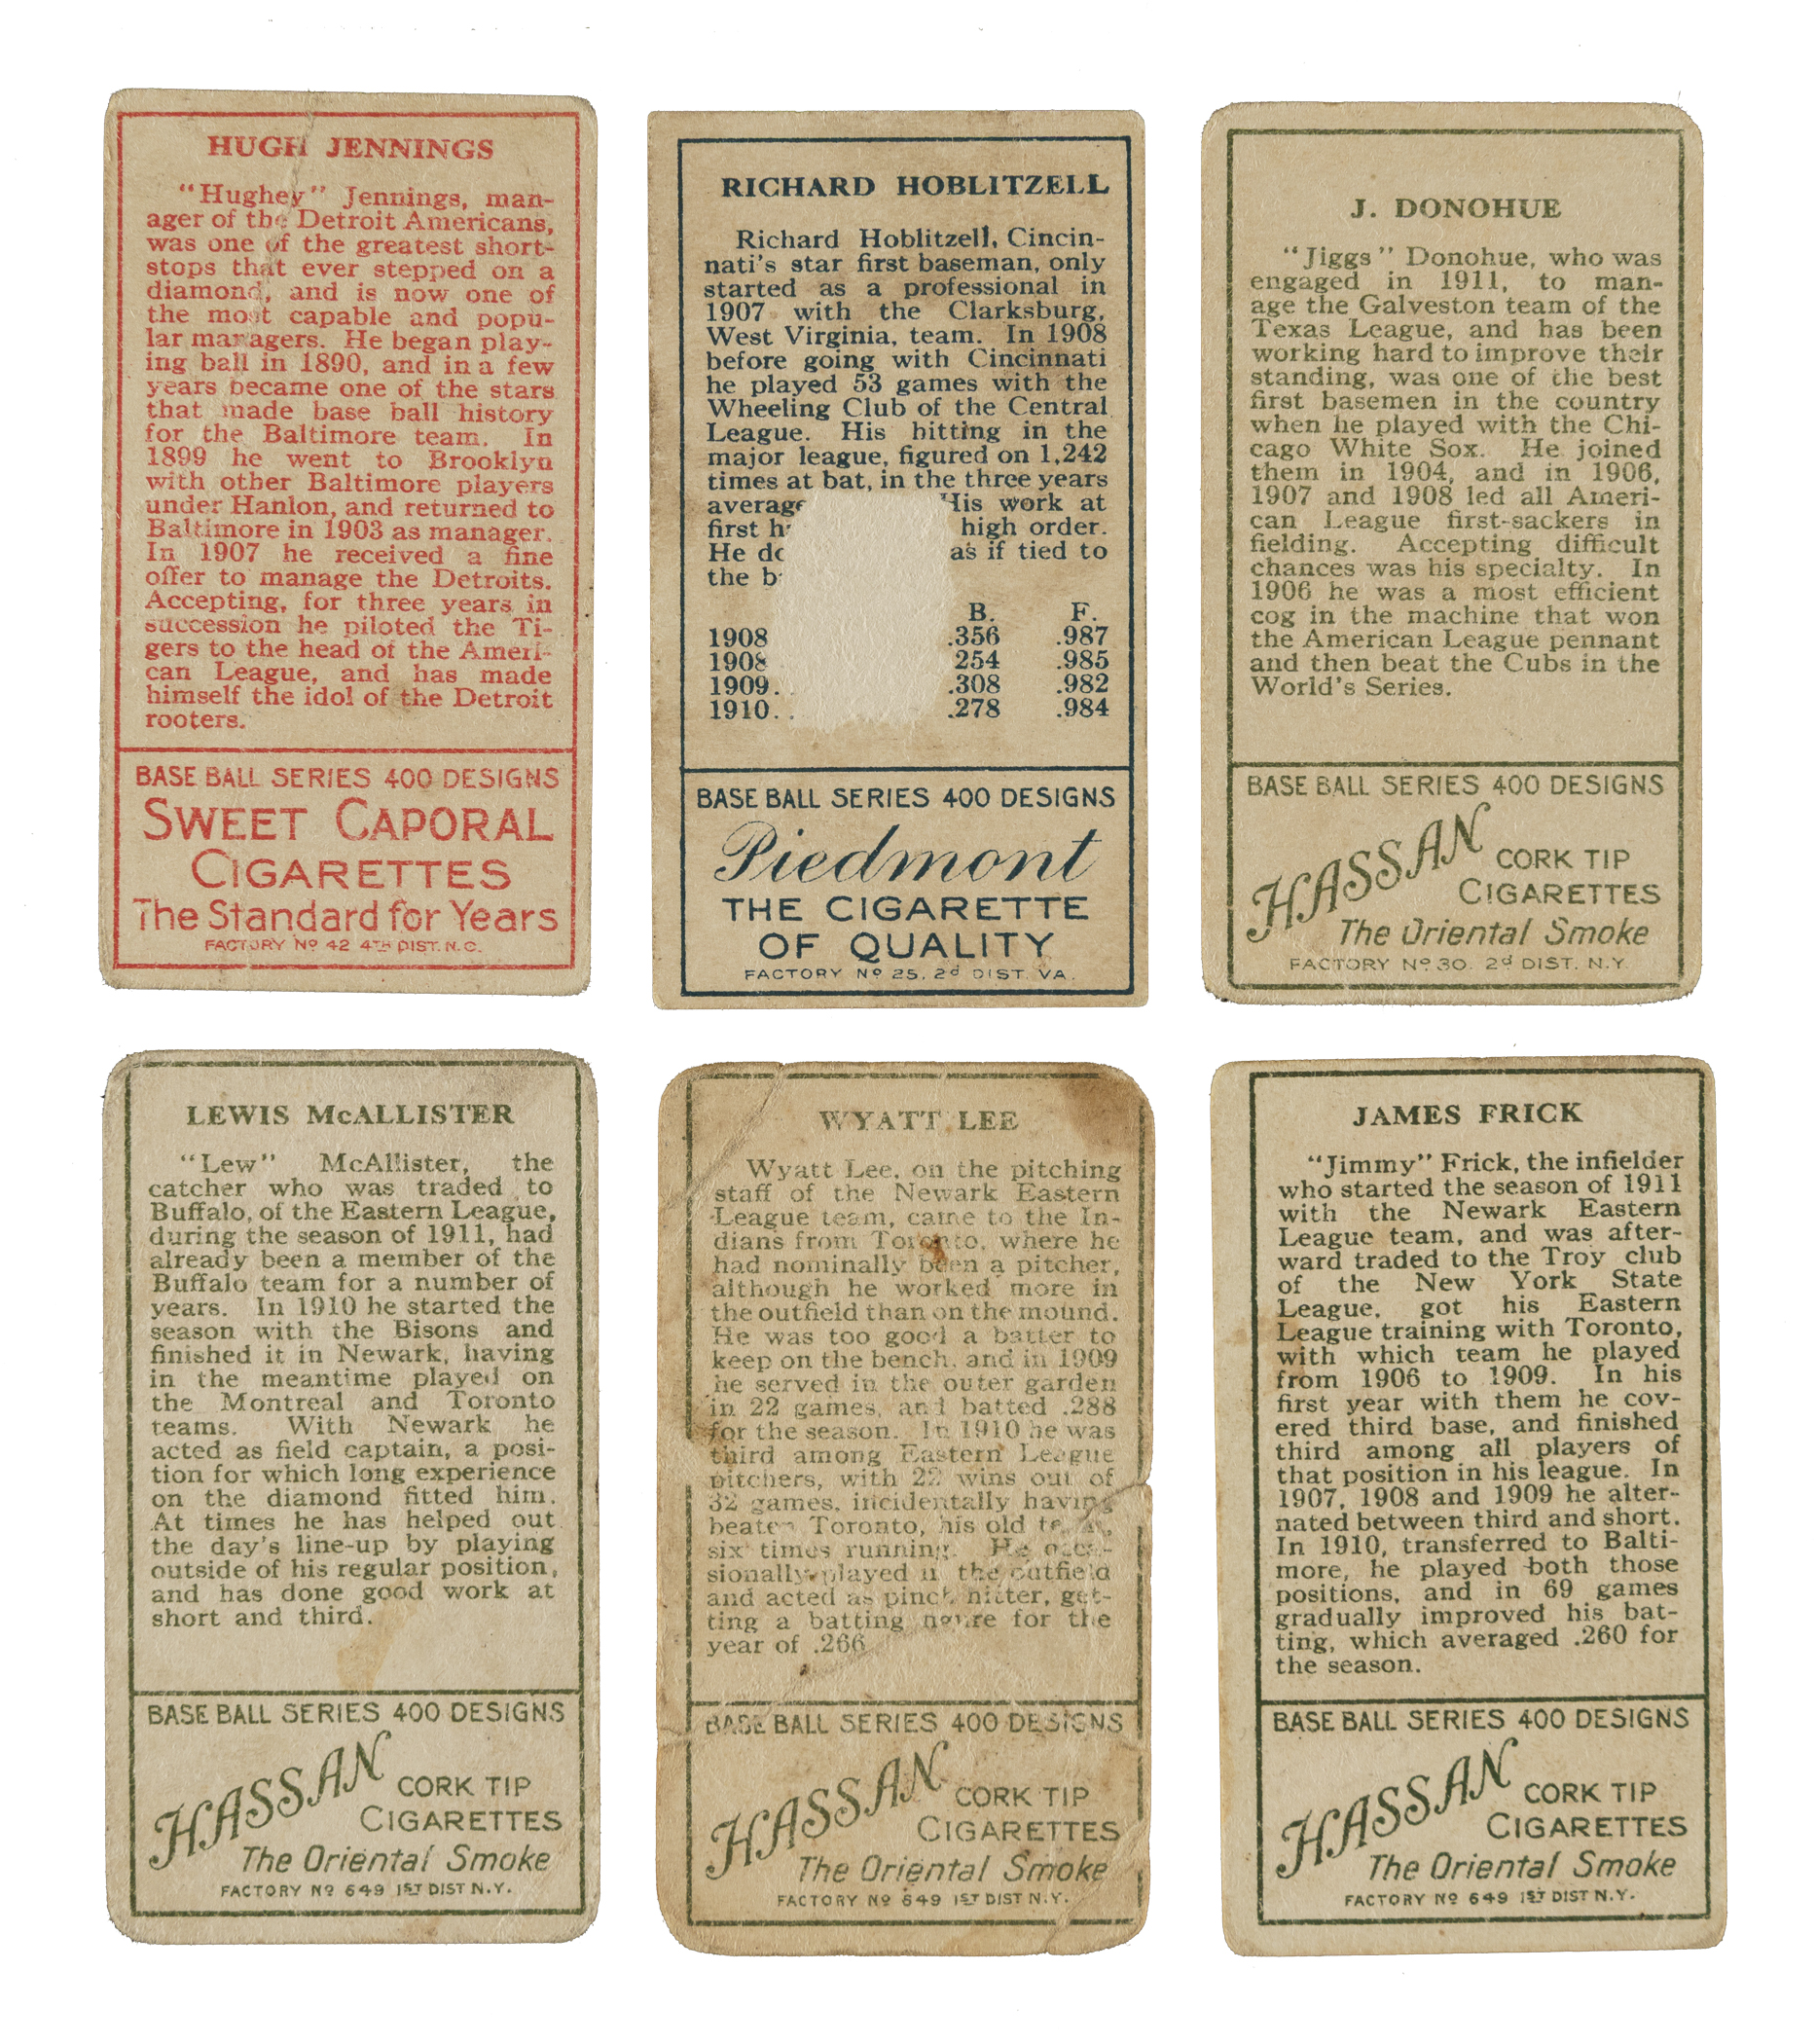 HUGH JENNINGS
"Hughey" Jennings, man-
ager of the Detroit Americans,
was one of the greatest short-
stops that ever stepped on a
diamond, and is now one of
the most capable and popu-
lar managers. He began play-
ing ball in 1890, and in a few
years became one of the stars
that made base ball history
for the Baltimore team. In
1899 he went to Brooklyn
with other Baltimore players
under Hanlon, and returned to
Baltimore in 1903 as manager.
In 1907 he received a fine
offer to manage the Detroits.
Accepting, for three years in
succession he piloted the Ti-
gers to the head of the Ameri-
can League, and has made
himself the idol of the Detroit
rooters.
BASE BALL SERIES 400 DESIGNS
SWEET CAPORAL
CIGARETTES
The Standard for Years
FACTORY Nº 42 4TH DIST. N.C.
RICHARD HOBLITZELL
Richard Hoblitzell, Cincin-
nati's star first baseman, only
started as a professional in
1907 with the Clarksburg,
West Virginia, team. In 1908
before going with Cincinnati
he played 53 games with the
Wheeling Club of the Central
League. His hitting in the
major league, figured on 1,242
times at bat, in the three years
average His work at
first high order.
He as if tied to
the
B. F.
1908 .356 .987
1908 254 .985
1909. .308 .982
1910. . .278 .984
BASE BALL SERIES 400 DESIGNS
Piedmont
THE CIGARETTE
OF QUALITY
FACTORY Nº 25. 2d DIST. VA.
J. DONOHUE
"Jiggs" Donohue, who was
engaged in 1911, to man-
age the Galveston team of the
Texas League, and has been
working hard to improve their
standing, was one of the best
first basemen in the country
when he played with the Chi-
cago White Sox. He joined
them in 1904, and in 1906,
1907 and 1908 led all Ameri-
can League first-sackers in
fielding. Accepting difficult
chances was his specialty. In
1906 he was a most efficient
cog in the machine that won
the American League pennant
and then beat the Cubs in the
World's Series.
BASE BALL SERIES 400 DESIGNS
HASSAN CORK TIP
CIGARETTES
The Oriental Smoke
FACTORY Nº 30. 2d DIST. N.Y.
LEWIS McALLISTER
"Lew" McAllister, the
catcher who was traded to
Buffalo, of the Eastern League,
during the season of 1911, had
already been a member of the
Buffalo team for a number of
years. In 1910 he started the
season with the Bisons and
finished it in Newark, having
in the meantime played on
the Montreal and Toronto
teams. With Newark he
acted as field captain, a posi-
tion for which long experience
on the diamond fitted him.
At times he has helped out
the day's line-up by playing
outside of his regular position,
and has done good work at
short and third.
BASE BALL SERIES 400 DESIGNS
HASSAN CORK TIP
CIGARETTES
The Oriental Smoke
FACTORY Nº 649 1ST DIST N.Y.
WYATT LEE
Wyatt Lee, on the pitching
staff of the Newark Eastern
League team, came to the In-
dians from Toronto, where he
had nominally been a pitcher,
although he worked more in
the outfield than on the mound.
He was too good a batter to
keep on the bench, and in 1909
he served in the outer garden
in 22 games, and batted .288
for the season. In 1910 he was
third among Eastern League
pitchers, with 22 wins out of
32 games, incidentally having
beaten Toronto, his old team,
six times running. He occa-
sionally played in the outfield
and acted as pinch hitter, get-
ting a batting figure for the
year of .266
BASE BALL SERIES 400 DESIGNS
HASSAN CORK TIP
CIGARETTES
The Oriental Smoke
FACTORY Nº 649 1ST DIST N.Y.
JAMES FRICK
"Jimmy" Frick, the infielder
who started the season of 1911
with the Newark Eastern
League team, and was after-
ward traded to the Troy club
of the New York State
League, got his Eastern
League training with Toronto,
with which team he played
from 1906 to 1909. In his
first year with them he cov-
ered third base, and finished
third among all players of
that position in his league. In
1907, 1908 and 1909 he alter-
nated between third and short.
In 1910, transferred to Balti-
more, he played both those
positions, and in 69 games
gradually improved his bat-
ting, which averaged .260 for
the season.
BASE BALL SERIES 400 DESIGNS
HASSAN CORK TIP
CIGARETTES
The Oriental Smoke
FACTORY Nº 649 1ST DIST N.Y.